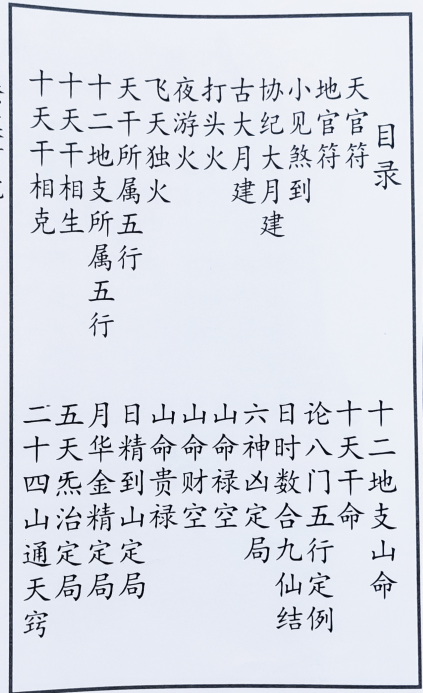 目录
天官符
地官符
小见煞到
协纪大月建
古大月建
打头火
夜游火
飞天独火
天干所属五行
十二地支所属五行
十天干相生
十天干相克
十二地支山命
十天干命
论八门五行定例
日时数合九仙结
六神凶定局
山命禄空
山命财空
山命贵禄
日精到山定局
月华金精定局
五天炁治定局
二十四山通天窍